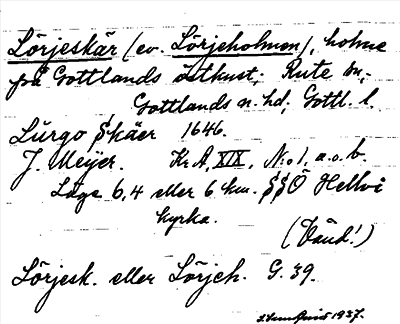 Lörjeskär (ev. Lörjeholmen), holme
på Gottlands östkust; Rute sn,
Gottlands n. hd; Gottl. l.
Lürgo Skäer 1646.
J. Meÿer. Kr A, XIX, N:o 1, a. o. b.
Läge 6,4 eller 6 km. SSÖ Hellvi
kyrka.
(Vänd!)
Lörjesk. eller Lörjeh. G. 39.
1937.